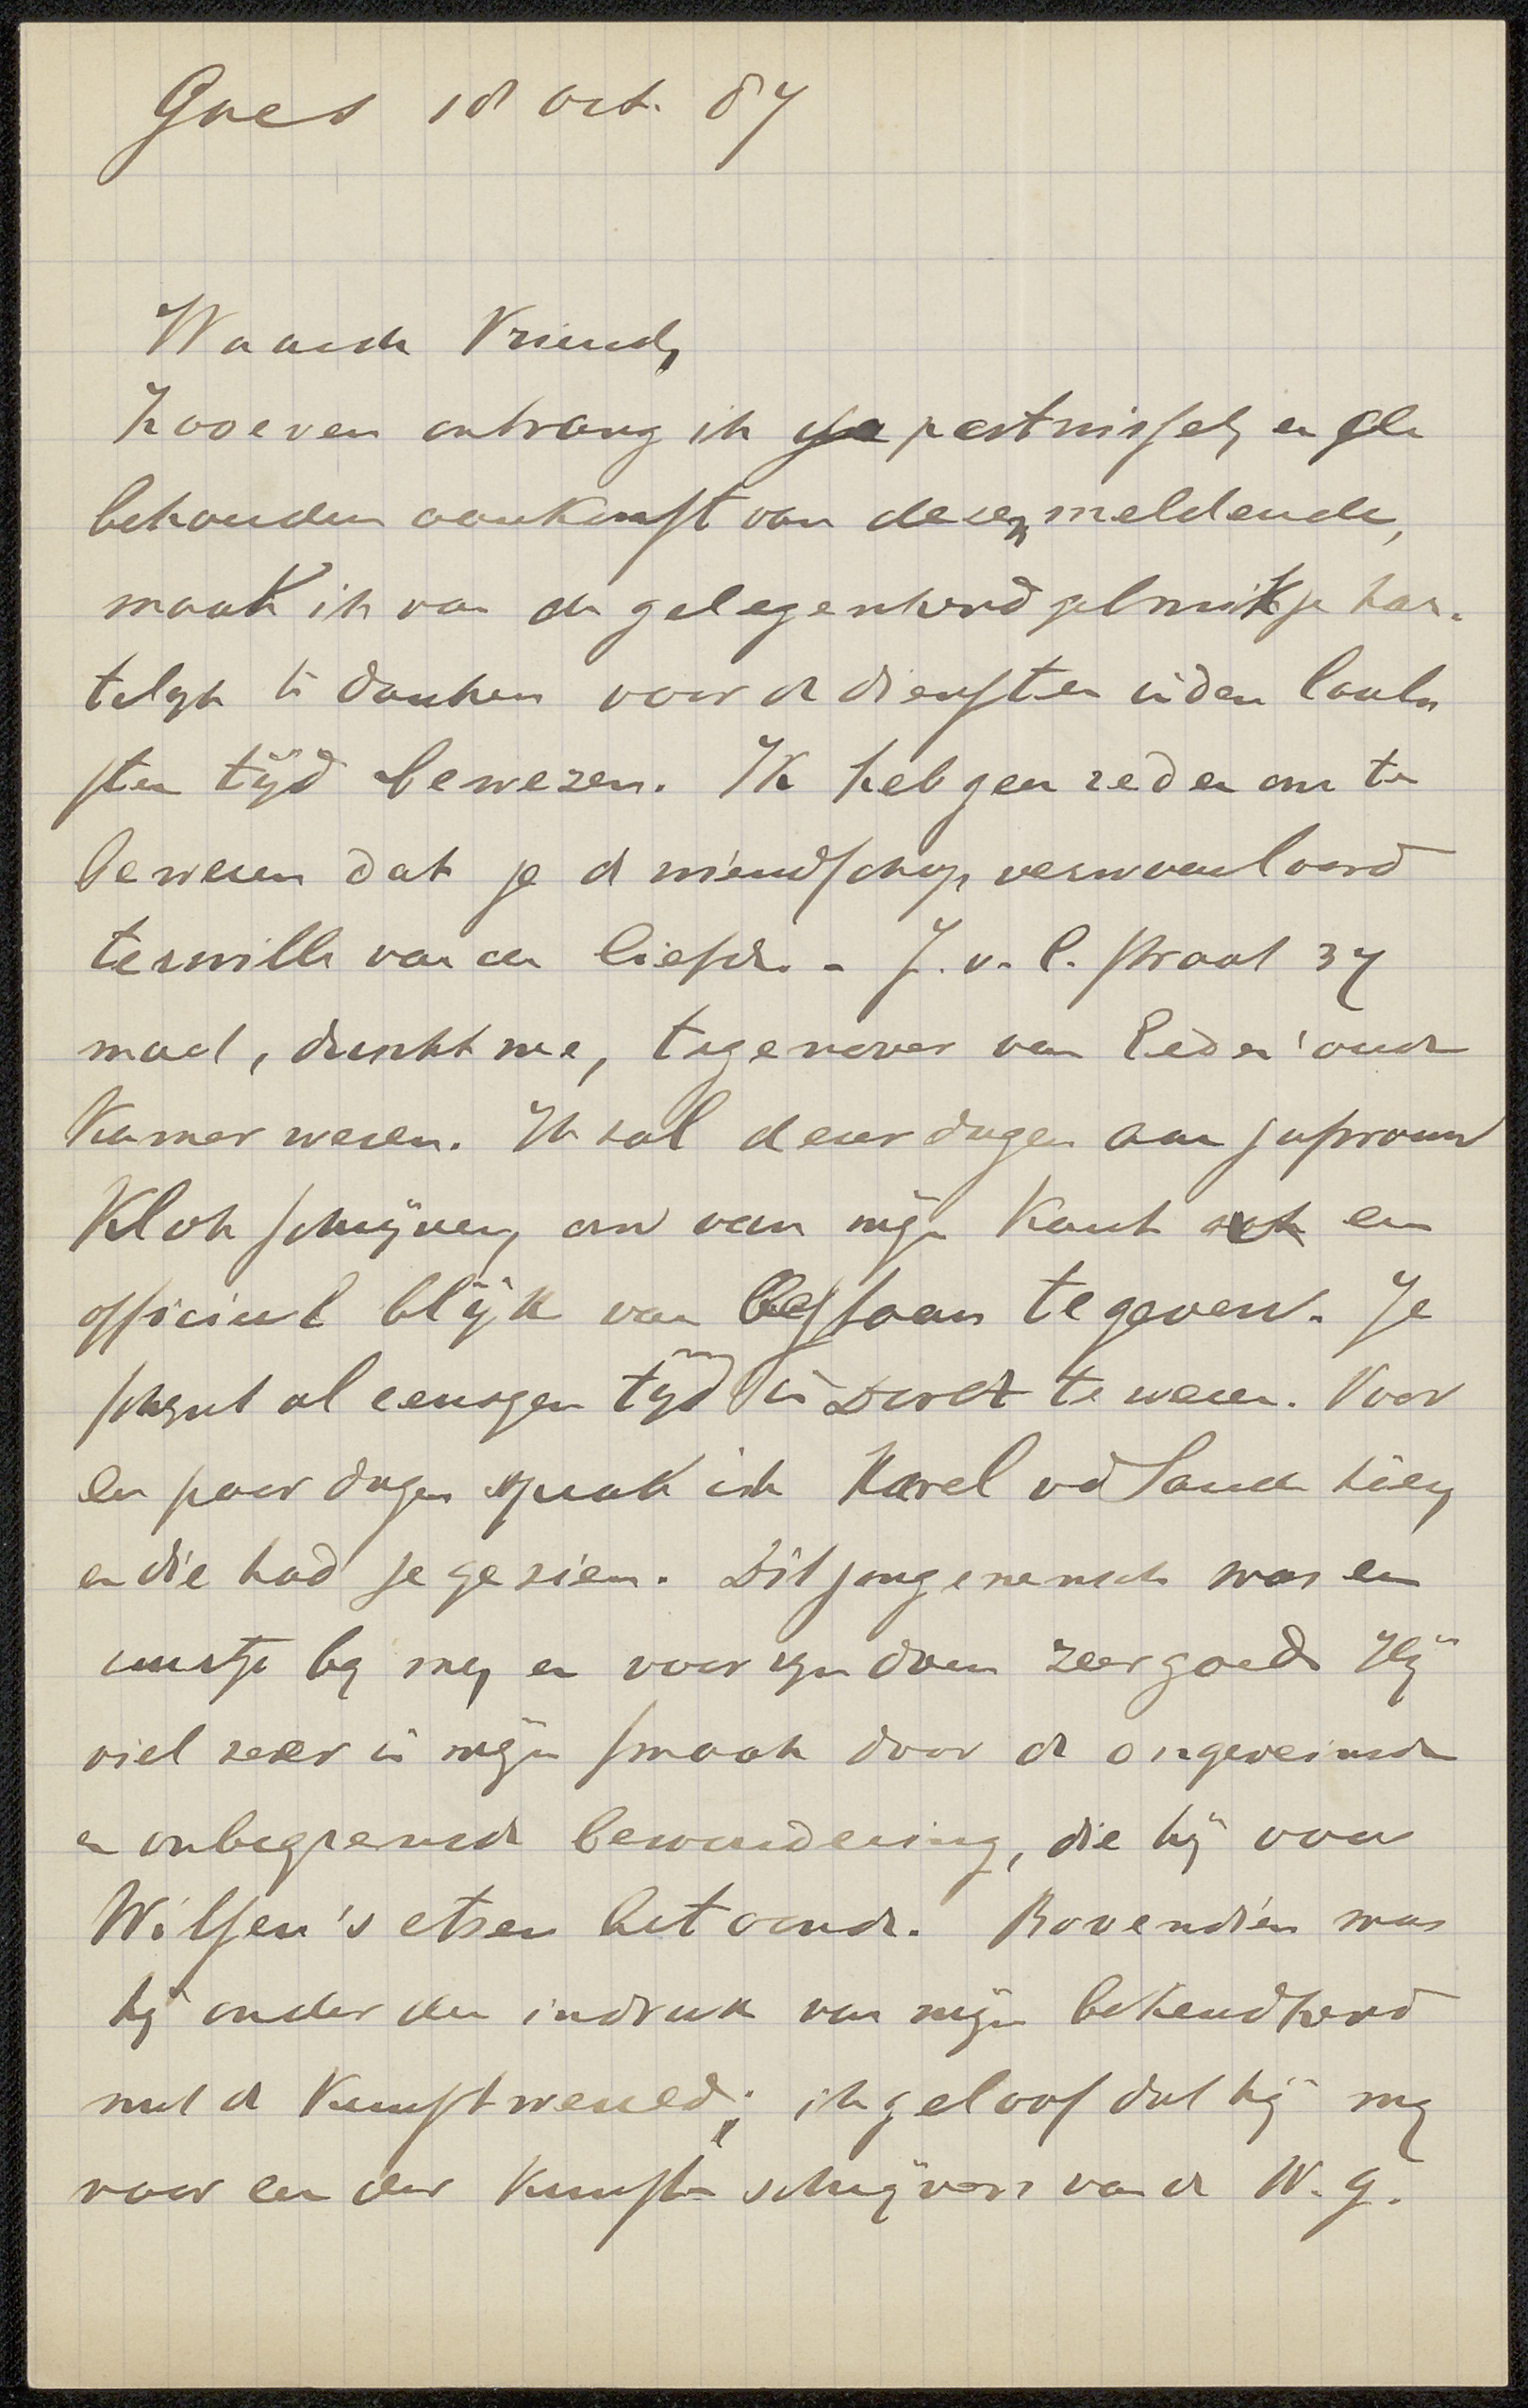 Goes 18 Oct. 87
Waarde Vriend,
Zooeven ontvang ik je postwissel, en de
behouden aankomst van dezen meldende,
maak ik van de gelegenheid gebruik je har-
telyk te danken voor de diensten in den laat-
sten tijd bewezen. Ik heb geen reden om te
beweren dat je de vriendschap verwaarloosd
terwille van de liefde. - J. v. C. straat 37
moet, dunkt me, tegenover van Eeden's oude
Kamer wezen. Ik zal dezer dagen aan juffrouw
Klok schrijven, om van mijn kant ook een
officieel blijk van bestaan te geven. Je
schijnt al eenigen tijd in Dordt te wezen. Voor
een paar dagen sprak ik Karel vd Sande hier,
en die had je gezien. Dit jongemensch was een
uurtje by my, en voor zyn doen zeer goed. Hij
viel zeer in mijn smaak door de ongeveinsde
en onbegrensde bewondering, die hij voor
Witsen's etsen betoonde. Bovendien was
hij onder den indruk van mijn bekendheid
met de Kunstwereld; ik geloof dat hij my
voor een der Kunst-schrijvers van de N. G.